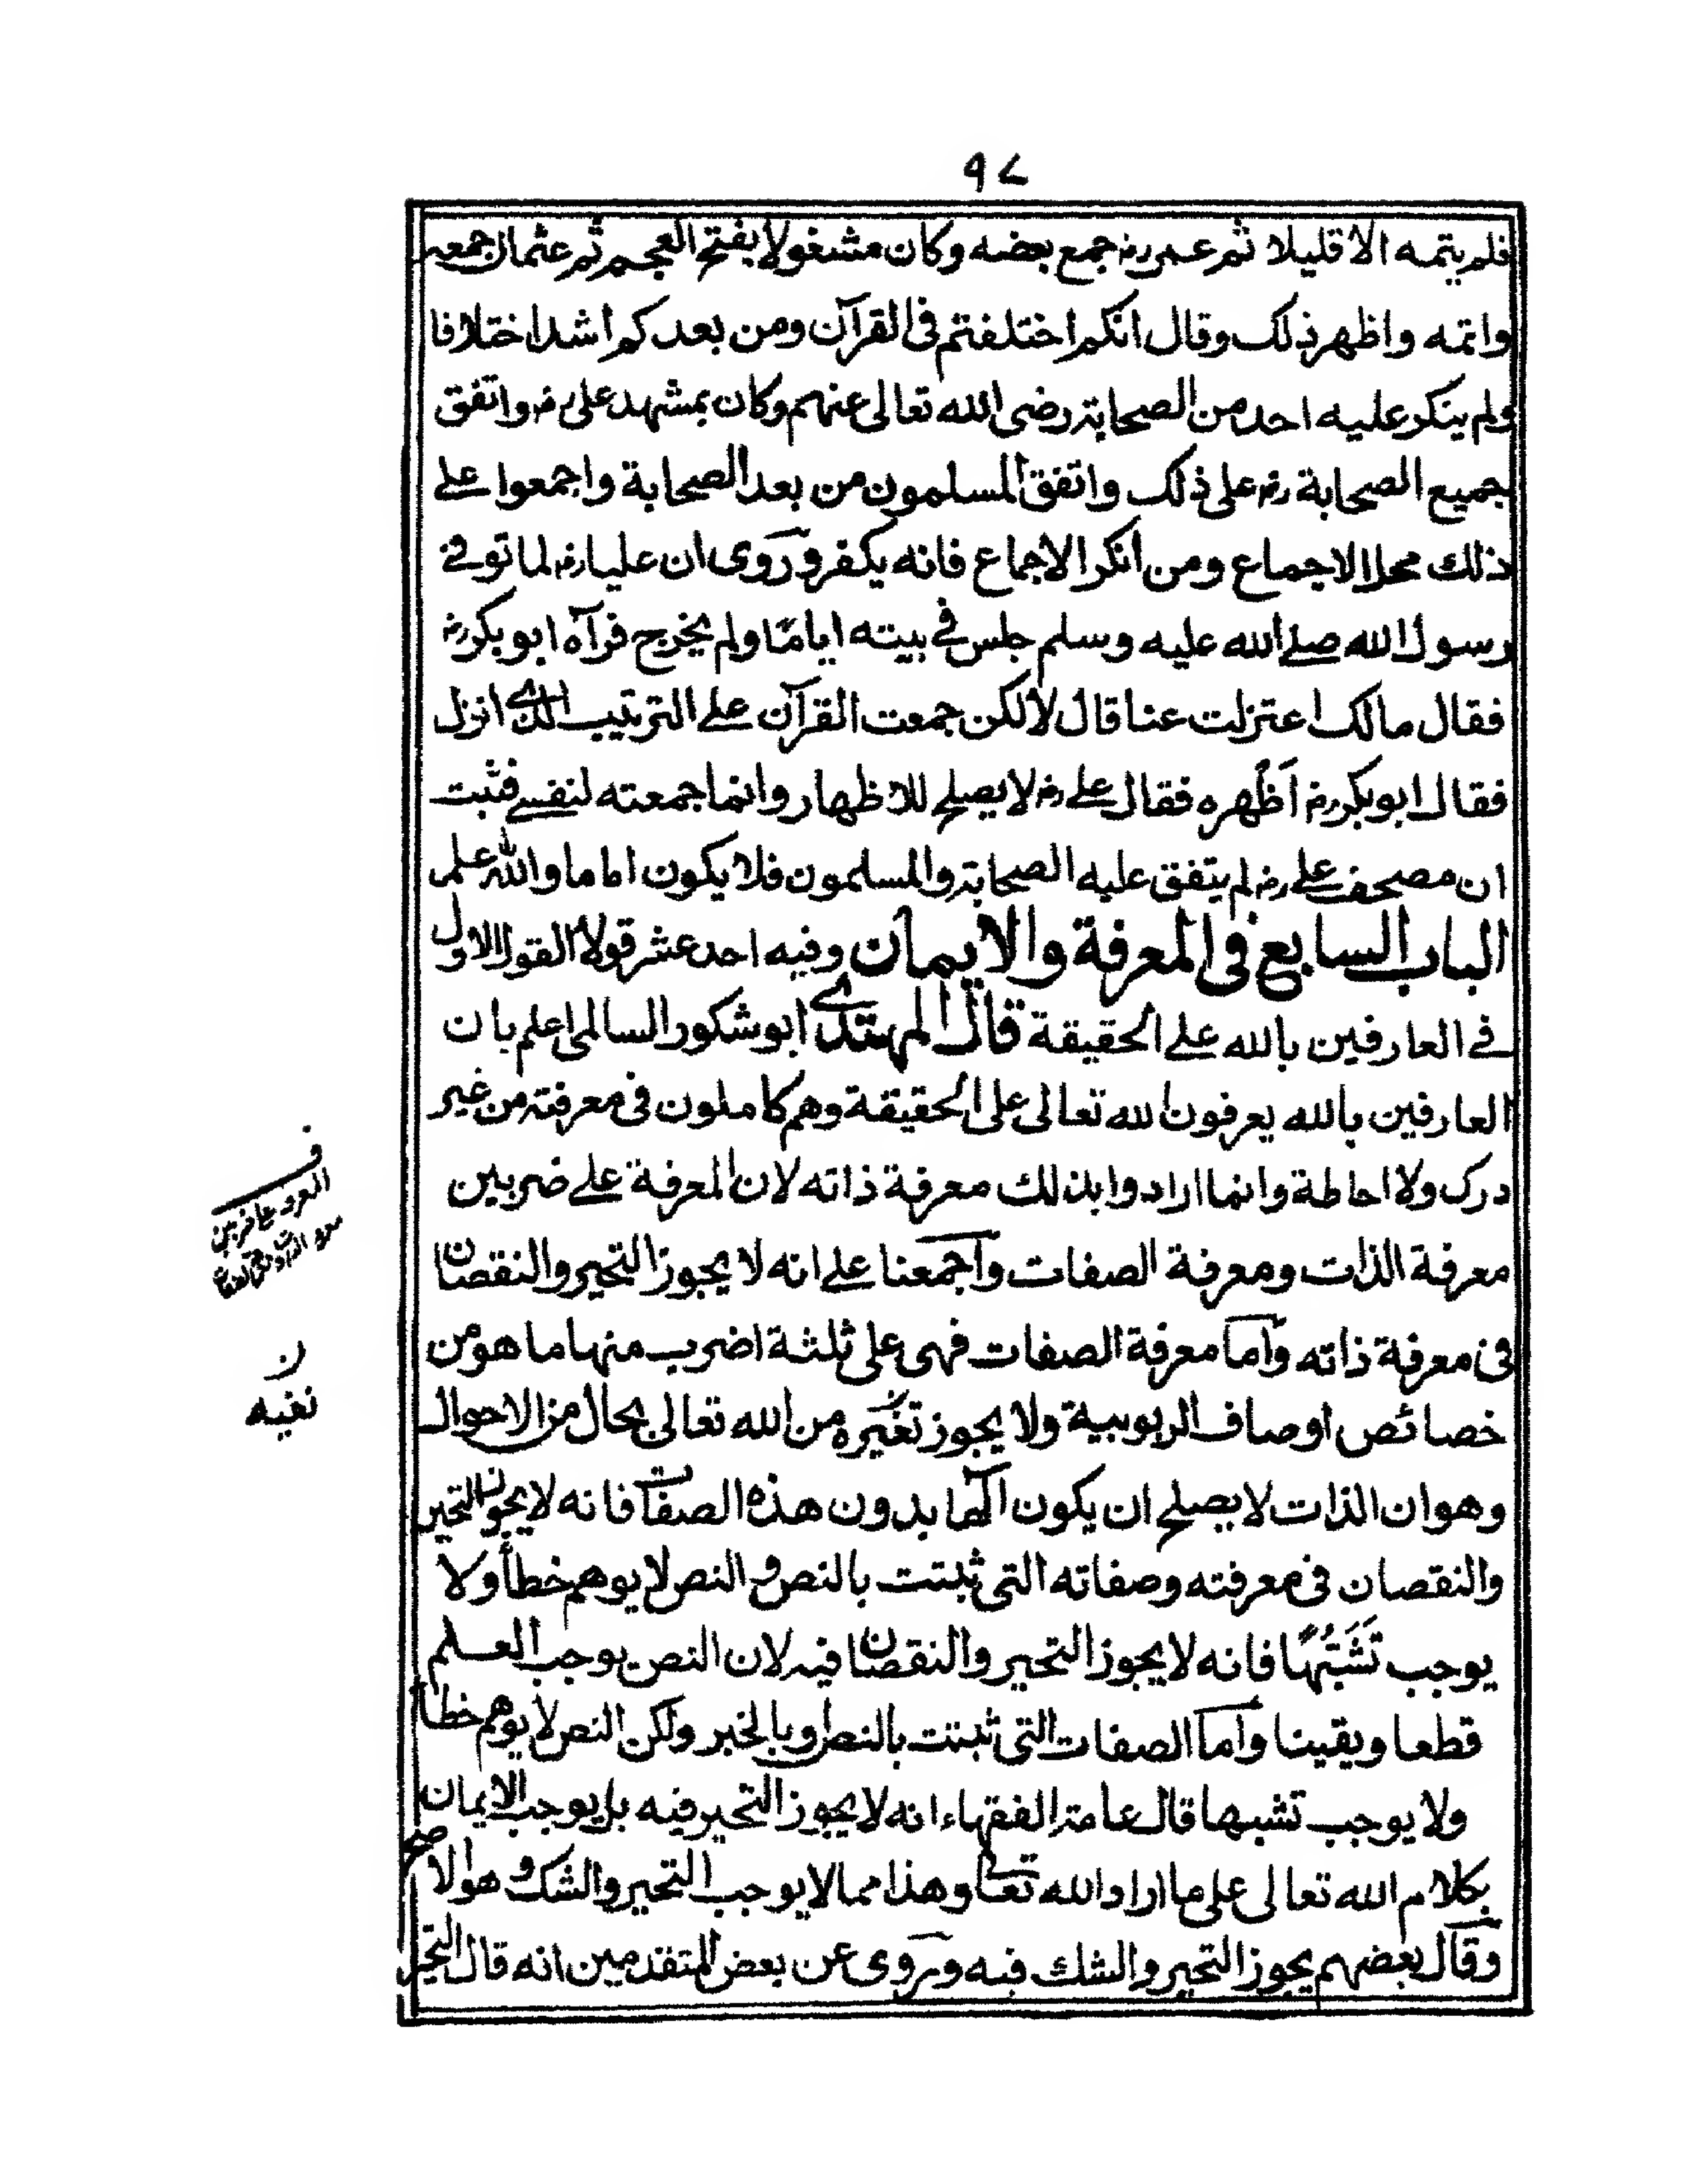 ٩٧
فلم يتمه الا قليلا ثم عمر رض جمع بعضه وكان مشغولا بفتح العجم ثم عثمان جمعه
واتمه واظهر ذلك وقال انكم اختلفتم فى القرآن ومن بعدكم اشد اختلافا
ولم ينكر عليه احد من الصحابة رضى الله تعالى عنهم وكان بمشهد على رض واتفق
جميع الصحابة رض على ذلك واتفق المسلمون من بعد الصحابة واجمعوا على
ذلك محل الاجماع ومن انكر الاجماع فانه يكفر وروى ان عليا رض لما توفى
رسول الله صلے الله عليه وسلم جلس فى بيته اياما ولم يخرج فرآه ابو بكر رض
فقال مالك اعتزلت عنا قال لا لكن جمعت القرآن على الترتيب الذى انزل
فقال ابو بكر رض اَظْهره فقال على رض لا يصلح للاظهار وانما جمعته لنفسى فثبت
ان مصحف على رض لم يتفق عليه الصحابة والمسلمون فلا يكون اماما والله علم
الباب السابع فى المعرفة والايمان وفيه احد عشر قولا القول الاول
فى العارفين بالله على الحقيقة قال المهتدى ابو شكور السالمى اعلم بان
العارفين بالله يعرفون الله تعالى على الحقيقة وهم كاملون فى معرفته من غير
درك ولا احاطة وانما ارادوا بذلك معرفة ذاته لان المعرفة على ضربين
معرفة الذات ومعرفة الصفات واجمعنا على انه لا يجوز التحير والنقصان
فى معرفة ذاته واما معرفة الصفات فهى على ثلثة اضرب منها ما هو من
خصائص اوصاف الربوبية ولا يجوز تغيره من الله تعالى بحال من الاحوال
وهو ان الذات لا يصلح ان يكون الٓها بدون هذه الصفات فانه لا يجوز التحير
والنقصان فى معرفته وصفاته التى ثبتت بالنص والنص لا يوهم خطأ ولا
يوجب تَشَبُّهًا فانه لا يجوز التحير والنقصان فيه لان النص يوجب العلم
قطعا ويقينا واما الصفات التى ثبتت بالنص او بالخبر ولكن النص لا يوهم خطأ
ولا يوجب تشبها قال عامة الفقهاء انه لا يجوز التحير فيه بل يوجب الايمان
بكلام الله تعالى على ما اراد الله تعالى وهذا مما لا يوجب التحير والشك وهو الاصح
وقال بعضهم يجوز التحير والشك فيه وروى عن بعض المتقدمين انه قال التحير
ن
نفيه